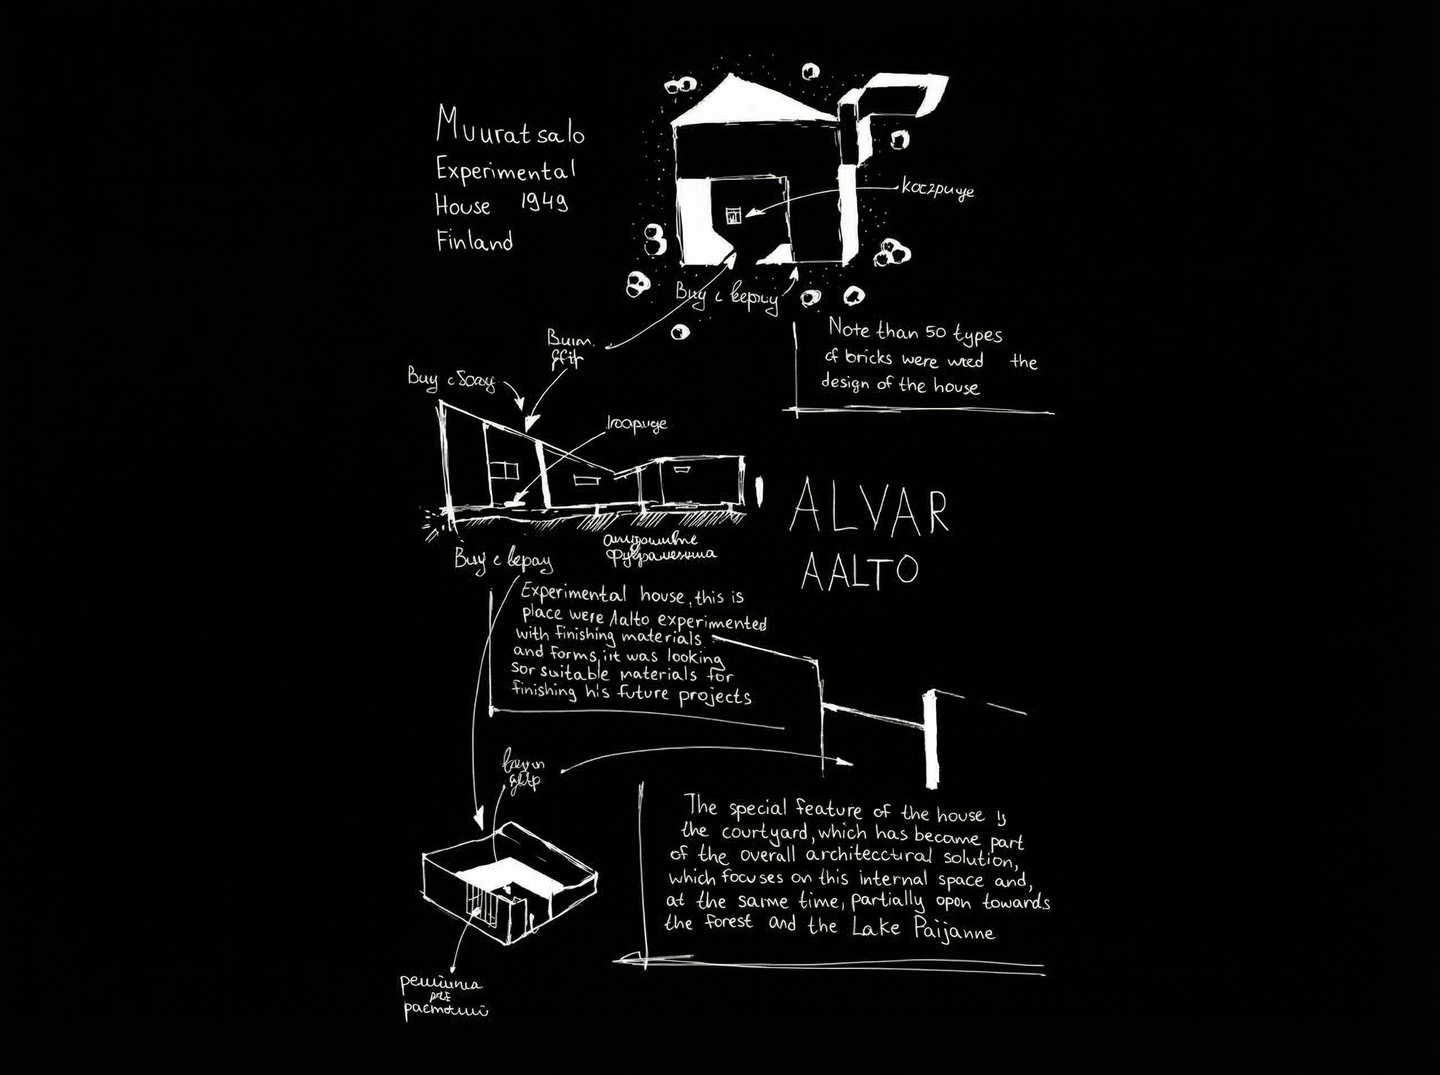 Muuratsalo
Experimental
House 1949
Finland
Вид с верху
Note than 50 types
of bricks were wred the
design of the house
ALVAR
AALTO
Experimental house, this is
place were Aalto experimented
with finishing materials
and forms, it was looking
sor suitable materials for
finishing his future projects
The special feature of the house is
the courtyard, which has became part
of the overall architecctural solution,
which focuses on this internal space and,
at the same time, partially open towards
the forest and the Lake Paijanne